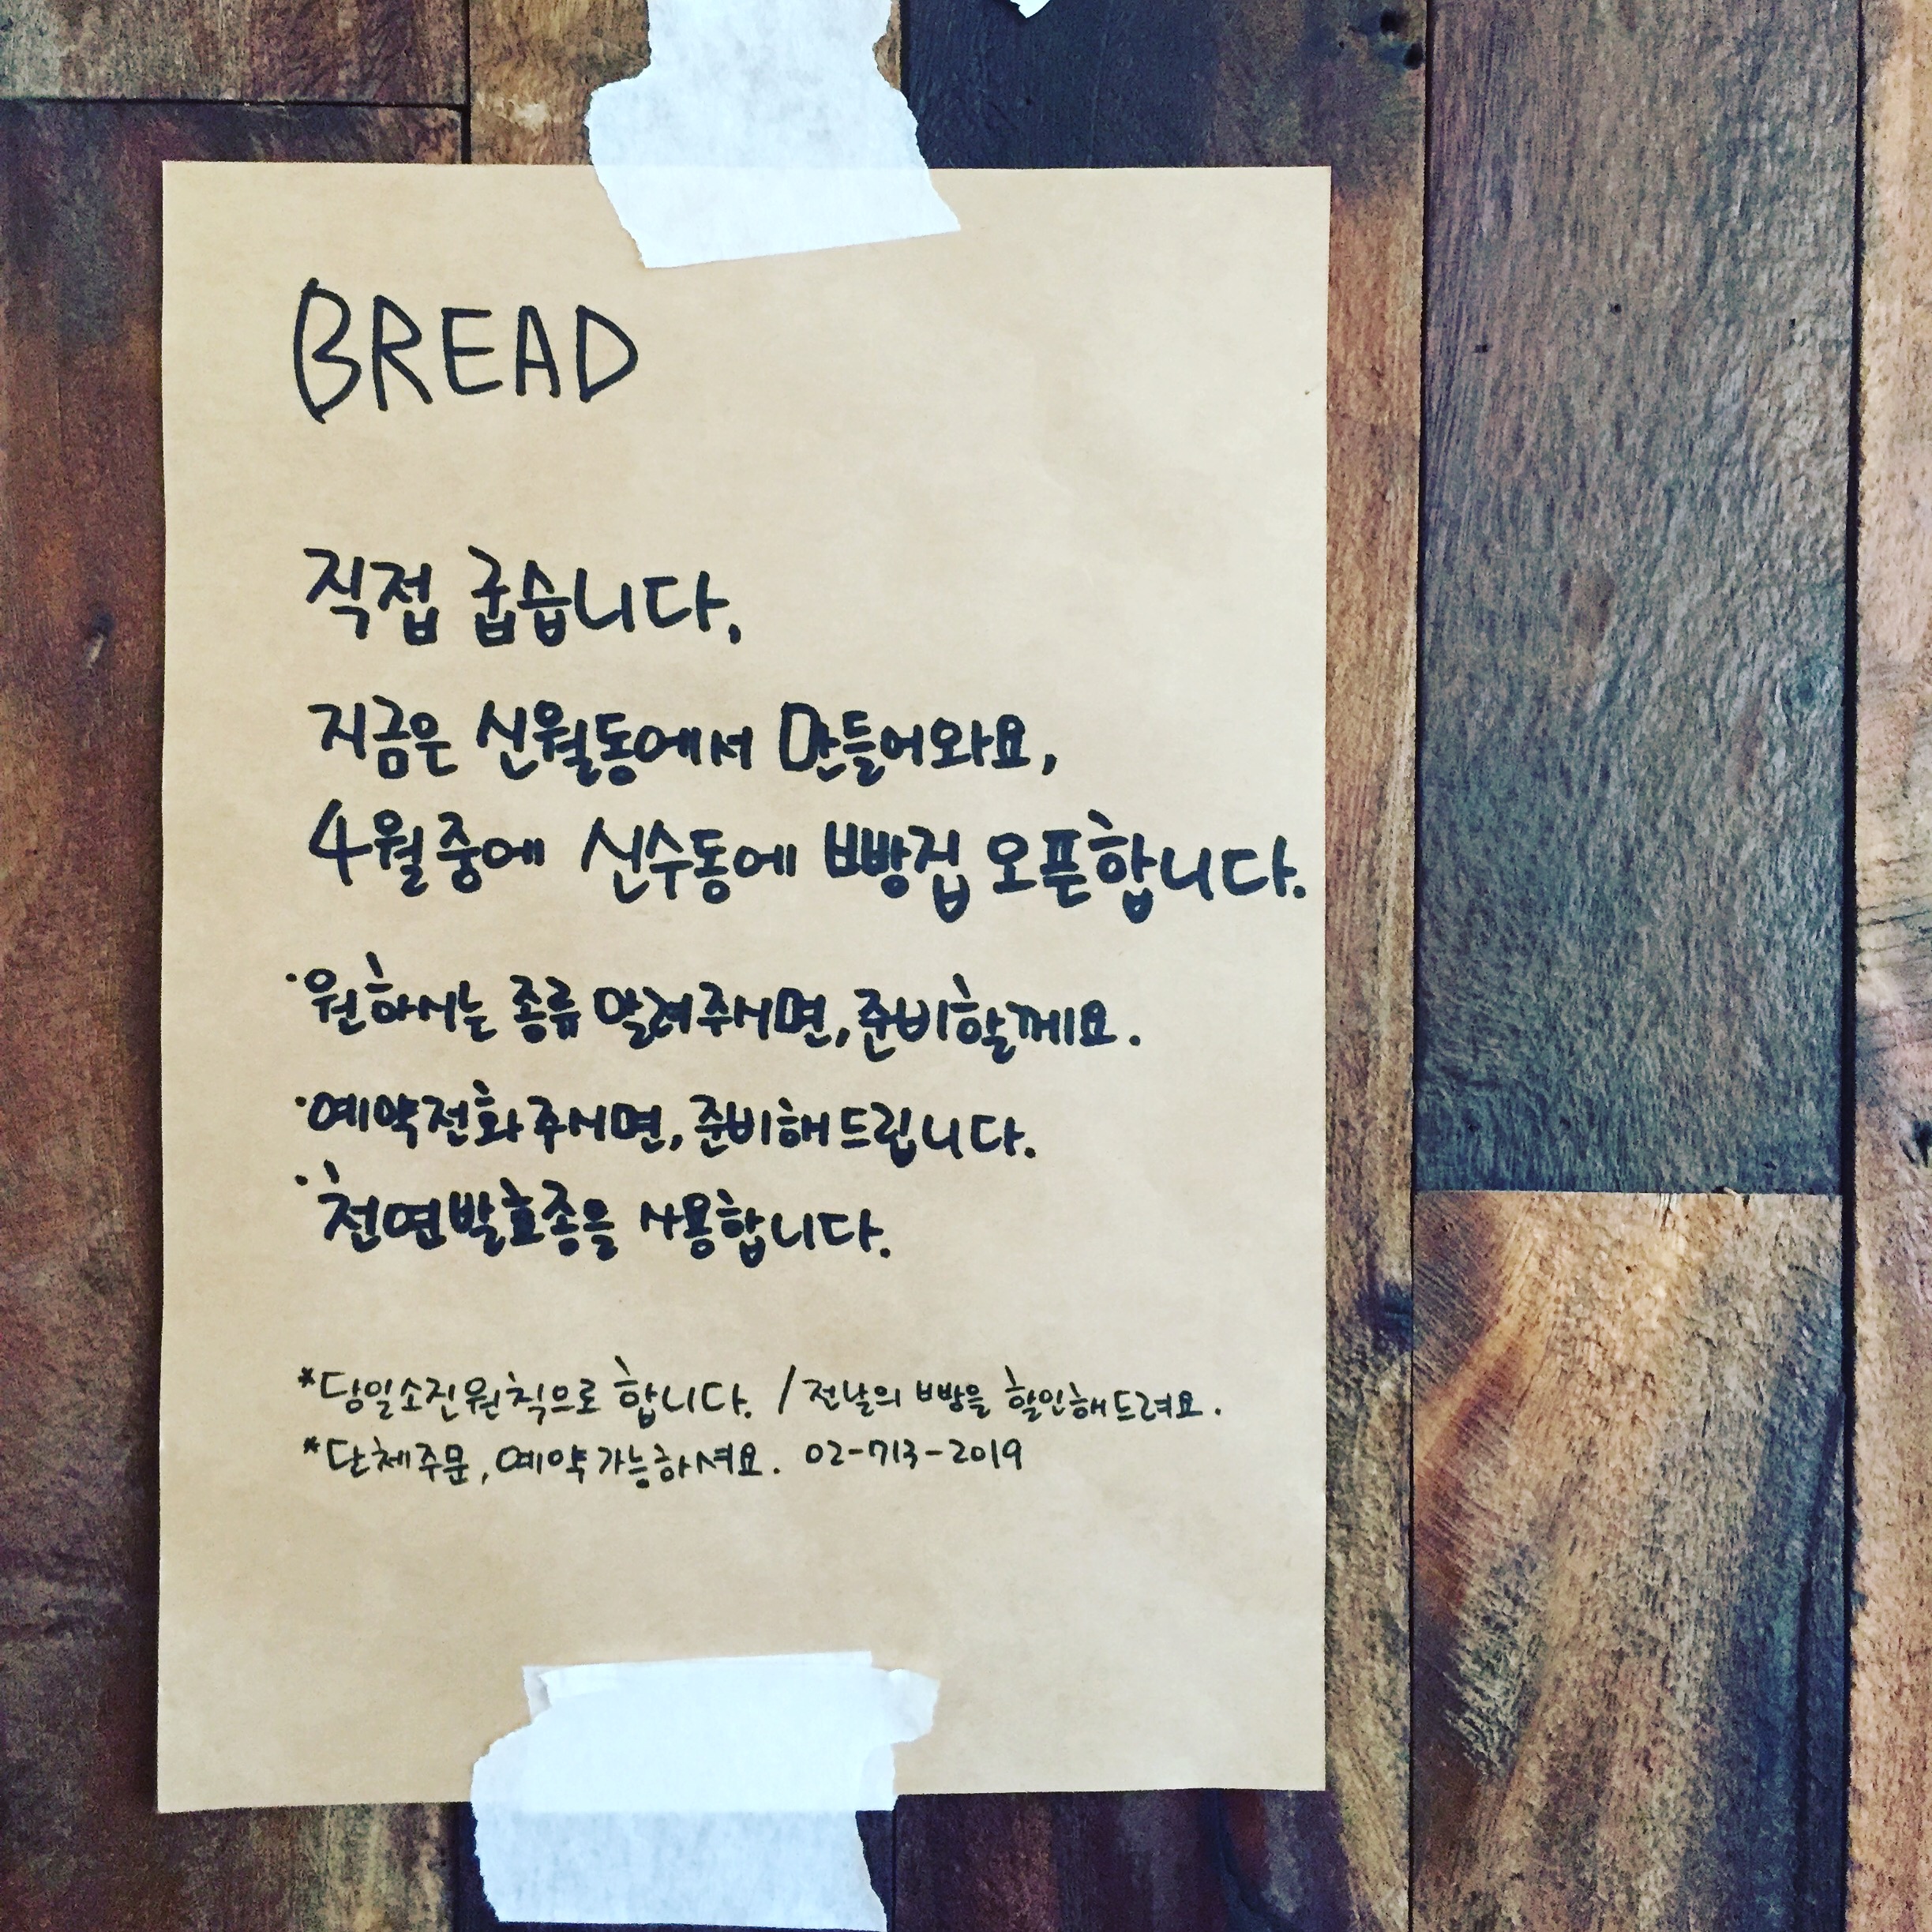 BREAD
직접 굽습니다,
지금은 신월동에서 만들어와요,
4월중에 신수동에 빵집 오픈합니다.
·원하시는 종류 말려주시면, 준비할께요.
·예약전화주시면, 준비해드립니다.
·천연발효종을 사용합니다.
*당일소진원칙으로 합니다. / 전날의 빵을 할인해드려요.
*단체주문, 예약가능하셔요. 02-713-2019